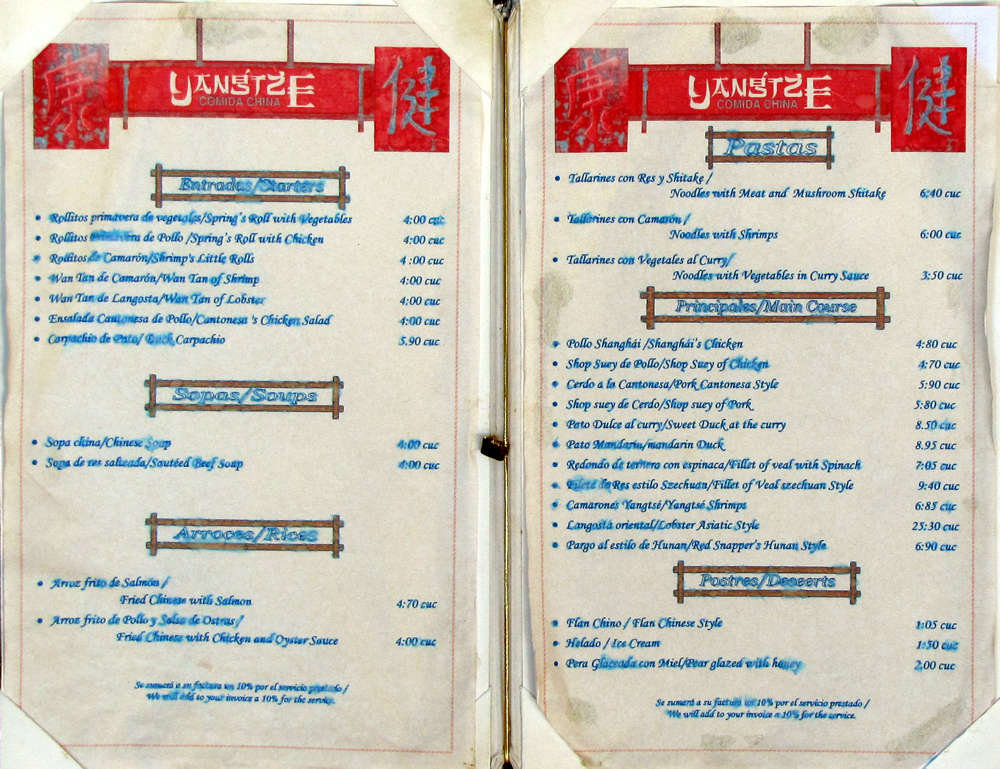 YANGTZE
COMIDA CHINA
Entradas/Starters
Rollitos primavera de vegetales/Spring's Roll with Vegetables 4:00 cuc
Rollitos primavera de Pollo /Spring's Roll with Chicken 4:00 cuc
Rollitos de Camarón/Shrimp's Little Rolls 4 :00 cuc
Wan Tan de Camarón/Wan Tan of Shrimp 4:00 cuc
Wan Tan de Langosta/Wan Tan of Lobster 4:00 cuc
Ensalada Cantonesa de Pollo/Cantonesa 's Chicken Salad 4:00 cuc
Carpachio de Pato/ Duck Carpachio 5.90 cuc
Sopas/Soups
Sopa china/Chinese Soup 4:00 cuc
Sopa de res salteada/Sautéed Beef Soup 4:00 cuc
Arroces/Rices
Arroz frito de Salmón /
Fried Chinese with Salmon 4:70 cuc
Arroz frito de Pollo y Salsa de Ostras/
Fried Chinese with Chicken and Oyster Sauce 4:00 cuc
Se sumará a su factura un 10% por el servicio prestado /
We will add to your invoice a 10% for the service.
健
YANGTZE
COMIDA CHINA
健
Pastas
Tallarines con Res y Shitake /
Noodles with Meat and Mushroom Shitake 6:40 cuc
Tallarines con Camarón /
Noodles with Shrimps 6:00 cuc
Tallarines con Vegetales al Curry/
Noodles with Vegetables in Curry Sauce 3:50 cuc
Principales/Main Course
Pollo Shanghái /Shanghái's Chicken 4:80 cuc
Shop Suey de Pollo/Shop Suey of Chicken 4:70 cuc
Cerdo a la Cantonesa/Pork Cantonesa Style 5:90 cuc
Shop suey de Cerdo/Shop suey of Pork 5:80 cuc
Pato Dulce al curry/Sweet Duck at the curry 8.50 cuc
Pato Mandarín/mandarin Duck 8.95 cuc
Redondo de ternero con espinaca/Fillet of veal with Spinach 7:05 cuc
Filete de Res estilo Szechuan/Fillet of Veal szechuan Style 9:40 cuc
Camarones Yangtsé/Yangtsé Shrimps 6:85 cuc
Langosta oriental/Lobster Asiatic Style 25:30 cuc
Pargo al estilo de Hunan/Red Snapper's Hunan Style 6:90 cuc
Postres/Desserts
Flan Chino / Flan Chinese Style 1:05 cuc
Helado / Ice Cream 1:50 cuc
Pera Glaceada con Miel/Pear glazed with honey 2,00 cuc
Se sumará a su factura un 10% por el servicio prestado /
We will add to your invoice a 10% for the service.